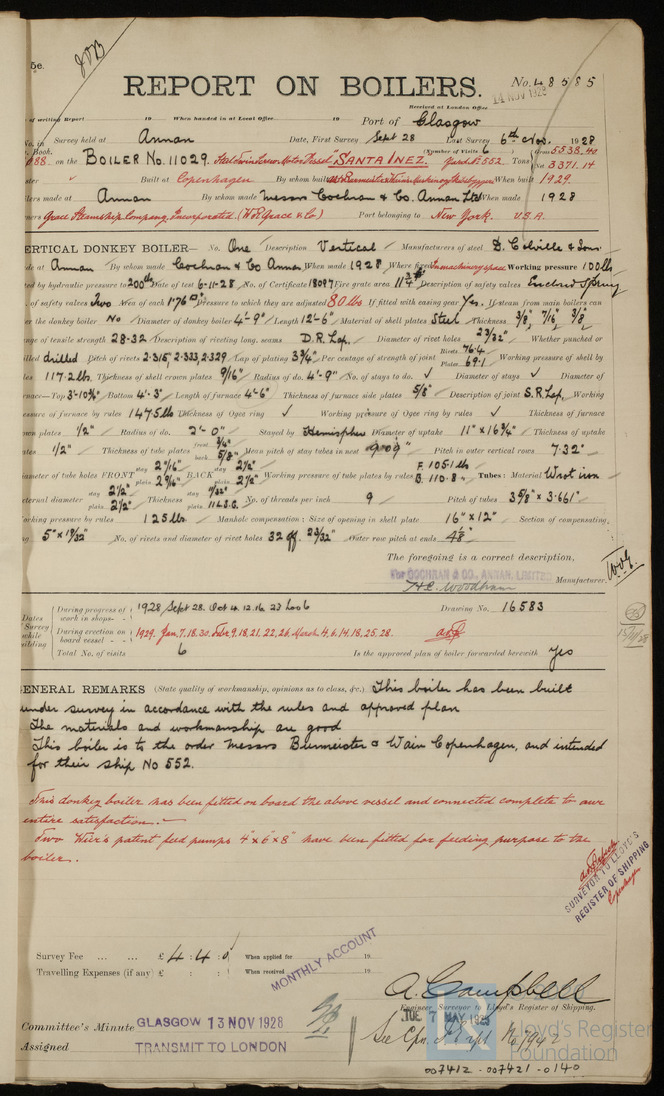 5e.
REPORT ON BOILERS.
No. 48585
Received at London Office
14 NOV 1928
of writing Report 19 When handed in at Local Office 19 Port of Glasgow
No. in Survey held at Annan Date, First Survey Sept 28 Last Survey 6th Nov. 1928
Book. (Number of Visits 6) Gross 5538.40
088. on the BOILER No. 11029. Steel Twin Screw Motor Vessel "SANTA INEZ. Yard No. 552. Tons Net 3371.14
Built at Copenhagen By whom built When built 1929.
Boilers made at Annan By whom made Messrs Cochran & Co. Annan Ltd When made 1928
Grace Steamship Company, Incorporated (W R Grace & Co) Port belonging to New York. U.S.A.
VERTICAL DONKEY BOILER— No. One Description Vertical Manufacturers of steel D. Colville & Sons.
Made at Annan By whom made Cochran & Co Annan When made 1928 Where fixed In machinery space Working pressure 100 lbs
by hydraulic pressure to 200 lbs Date of test 6-11-28 No. of Certificate 18097 Fire grate area 11 Description of safety valves Enclosed Spring
of safety valves Two Area of each 1.76 Pressure to which they are adjusted 80 lbs If fitted with easing gear Yes. If steam from main boilers can
the donkey boiler No Diameter of donkey boiler 4'-9" Length 12'-6" Material of shell plates Steel Thickness 3/8", 7/16", 3/8"
of tensile strength 28-32 Description of riveting long. seams D.R. Lap. Diameter of rivet holes 23/32" Whether punched or
drilled drilled Pitch of rivets 2.315, 2.333, 2.329 Lap of plating 3 3/4" Per centage of strength of joint Rivets 76.4 Plates 69.1 Working pressure of shell by
117.2 lbs. Thickness of shell crown plates 9/16" Radius of do. 4'-9" No. of stays to do. ✓ Diameter of stays ✓ Diameter of
furnace—Top 3'-10 3/8" Bottom 4'-3" Length of furnace 4'-6" Thickness of furnace side plates 5/8" Description of joint S.R. Lap. Working
pressure of furnace by rules 147.5 lbs Thickness of Ogee ring ✓ Working pressure of Ogee ring by rules ✓ Thickness of furnace
crown plates 1/2" Radius of do. 2'-0" Stayed by Hemisphere Diameter of uptake 11" x 16 3/4" Thickness of uptake
plates 1/2" Thickness of tube plates front 3/4" back 5/8" Mean pitch of stay tubes in nest 9.09" Pitch in outer vertical rows 7.32"
Diameter of tube holes FRONT stay 2 9/16" plain 2 9/16" BACK stay 2 1/2" plain 2 1/2" Working pressure of tube plates by rules F. 105.1 lbs B. 110.8 Tubes: Material Wrot iron
External diameter stay 2 1/2" plain 2 1/2" Thickness stay 11/32" plain 11 L.S.G. No. of threads per inch 9 Pitch of tubes 3 5/8" x 3.661"
Working pressure by rules 125 lbs Manhole compensation: Size of opening in shell plate 16" x 12" Section of compensating
5" x 19/32" No. of rivets and diameter of rivet holes 32 off. 23/32" Outer row pitch at ends 4 1/8"
The foregoing is a correct description,
For COCHRAN & CO., ANNAN, LIMITED
H.C. Woodham Manufacturer.
Dates of Survey while building
During progress of work in shops- - 1928 Sept 28. Oct 4. 12. 16. 23 Nov 6 Drawing No. 16583
During erection on board vessel - - - 1929. Jan. 7. 18. 30. Feb. 9. 18. 21. 22. 26. March 4. 6. 14. 18. 25. 28.
Total No. of visits 6 Is the approved plan of boiler forwarded herewith Yes
GENERAL REMARKS (State quality of workmanship, opinions as to class, &c.) This boiler has been built
under survey in accordance with the rules and approved plan
The materials and workmanship are good
This boiler is to the order Messrs Burmeister & Wain Copenhagen, and intended
for their ship No 552.
This donkey boiler has been fitted on board the above vessel and connected complete to our
entire satisfaction.
Two Weir's patent feed pumps 4" x 6" x 8" have been fitted for feeding purpose to the
boiler.
SURVEYOR TO LLOYD'S
REGISTER OF SHIPPING
Copenhagen
Survey Fee ... ... £ 4 : 4 : 0 When applied for 19
Travelling Expenses (if any) £ : : When received 19
MONTHLY ACCOUNT
A. Campbell
Engineer Surveyor to Lloyd's Register of Shipping.
TUE 7 MAY 1929
Committee's Minute GLASGOW 13 NOV 1928
Assigned TRANSMIT TO LONDON
See Cpn. Rpt No. 7942
Lloyd's Register
Foundation
007412 - 007421 - 0140